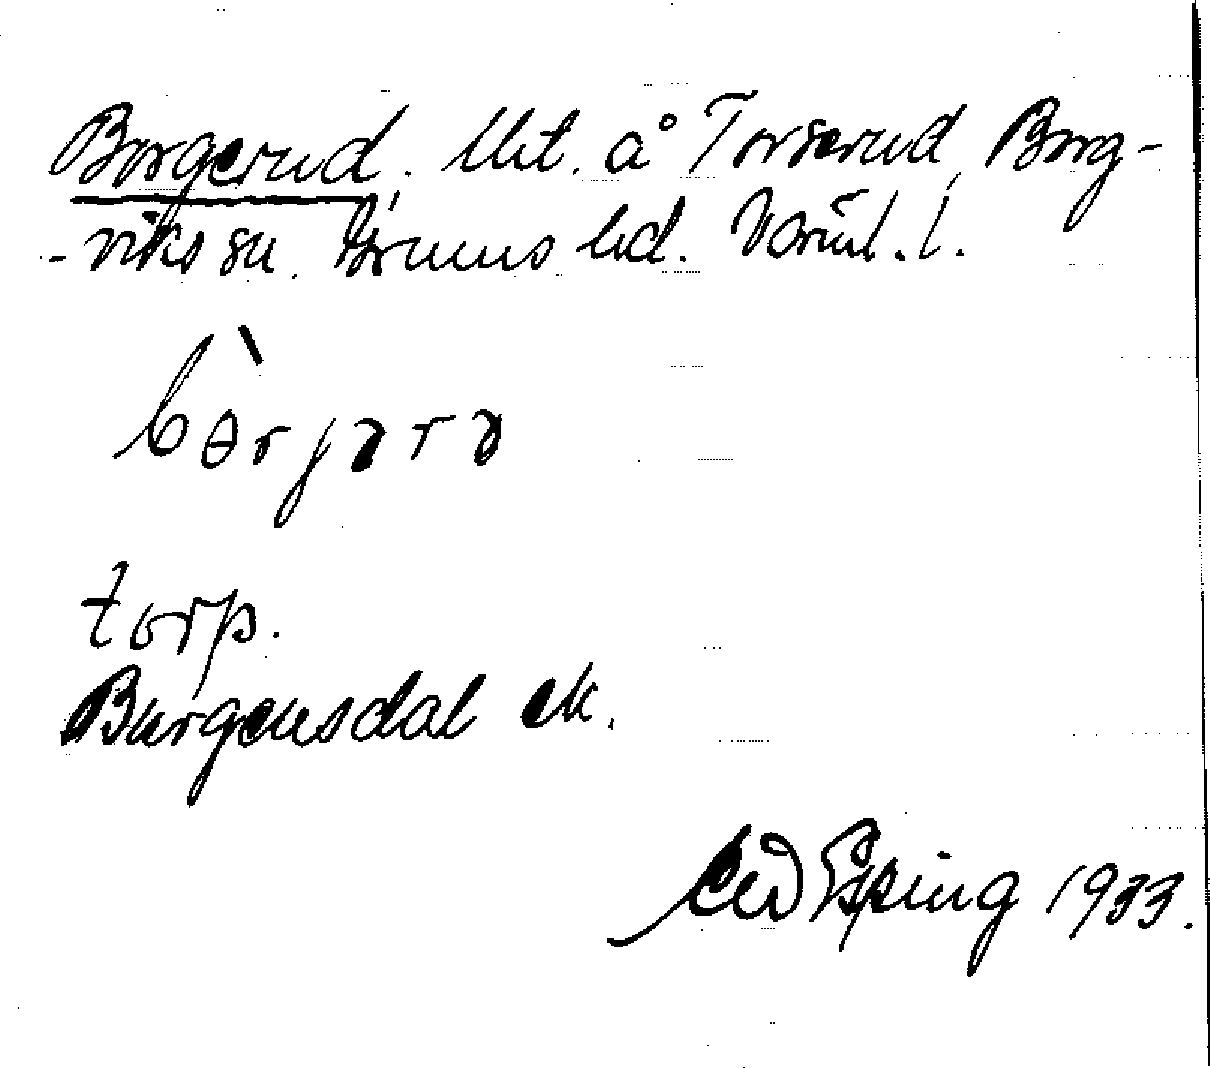 Borgerud. Utt. å Torserud, Borg-
-viks sn. Grums hd. Värml. l.
bòrjərə
torp.
Burgensdal ek.
Espling 1933.